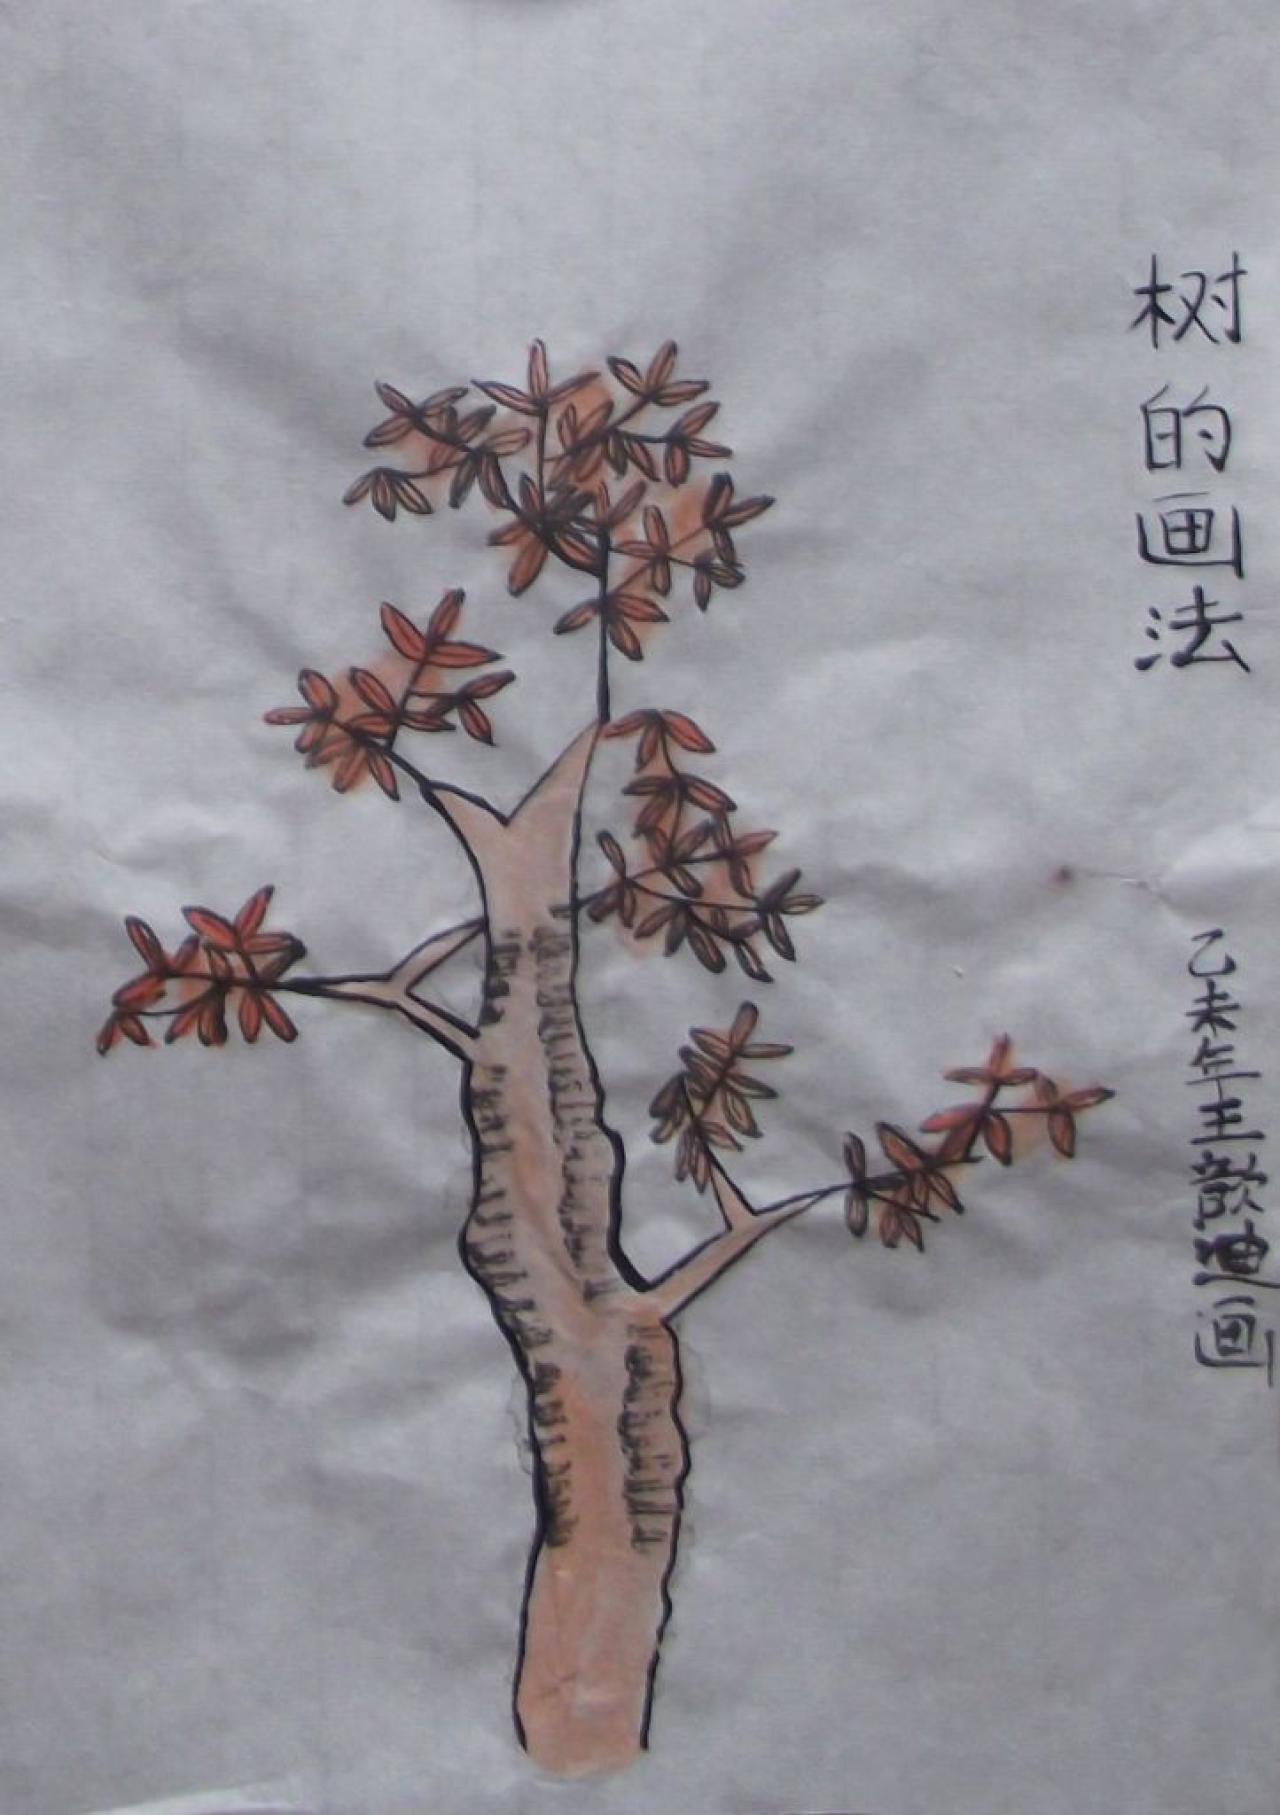 树的画法
乙未年王歆迪画